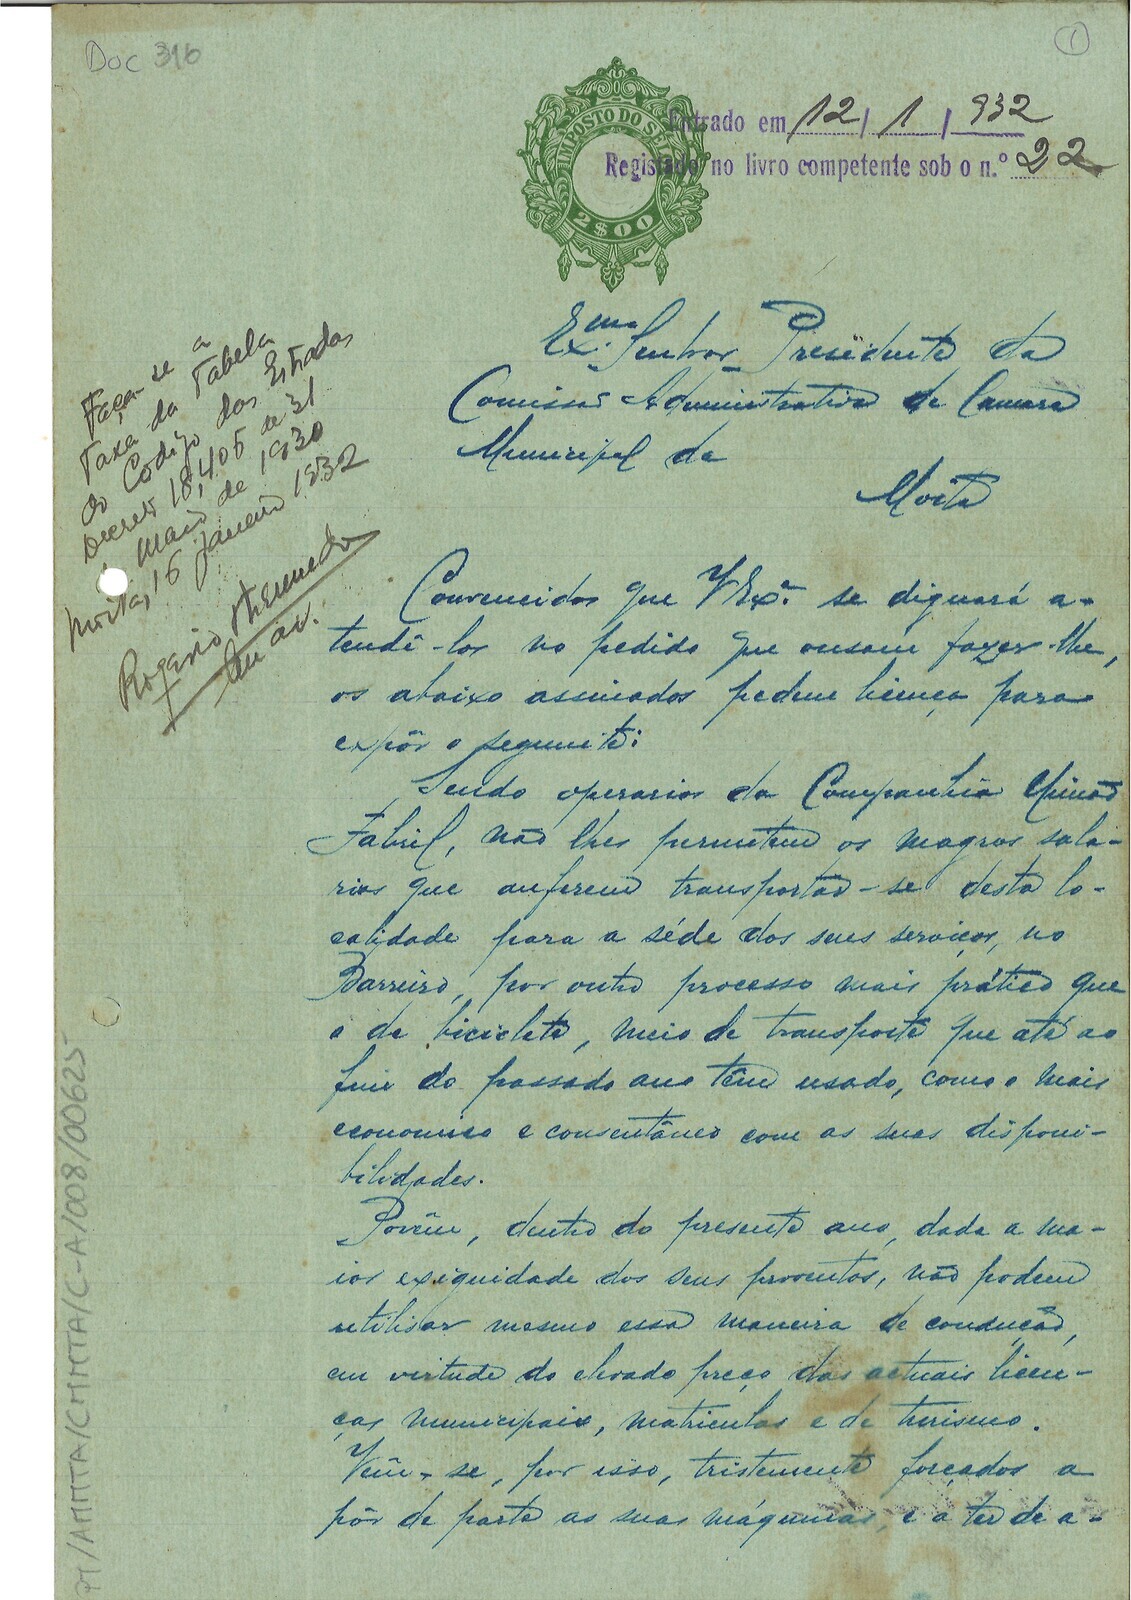 Doc 316
1
IMPOSTO DO S
2$00
Entrado em 12/1/932
Registado no livro competente sob o n.º 22
Exmo. Senhor Presidente da
Comissão Administrativa da Camara
Municipal da
Moita
Faça-se a
Taxa da Tabela
do Codigo das Estradas
Decreto 18,406 de 31
de Maio de 1930
Moita, 16 Janeiro 1932
Rogerio
Convencidos que V Exª. se dignará a-
tendê-los no pedido que ousam fazer-lhe,
os abaixo assinados pedem licença para
expôr o seguinte:
Sendo operarios da Companhia União
Fabril, não lhes permitem os magros sala-
rios que auferem transportar-se desta lo-
calidade para a séde dos seus serviços, no
Barreiro, por outro processo mais prático que
o de bicicleta, meio de transporte que até ao
fim do passado ano têm usado, como o mais
economico e consentâneo com as suas disponi-
bilidades.
Porêm, dentro do presente ano, dada a ma-
ior exiguidade dos seus proventos, não podem
utilisar mesmo essa maneira de condução,
em virtude do elevado preço das actuais licen-
ças municipais, matriculas e de turismo.
Vêm-se, por isso, tristemente forçados a
pôr de parte as suas máquinas, e a ter de a-
PT/AMMTA/CMMTA/C-A/008/00625